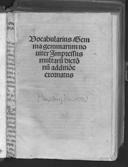 Vocabularius Gem
ma gemmarum no
uiter Impressus
multarū dictō
nū additiōe
exornatus